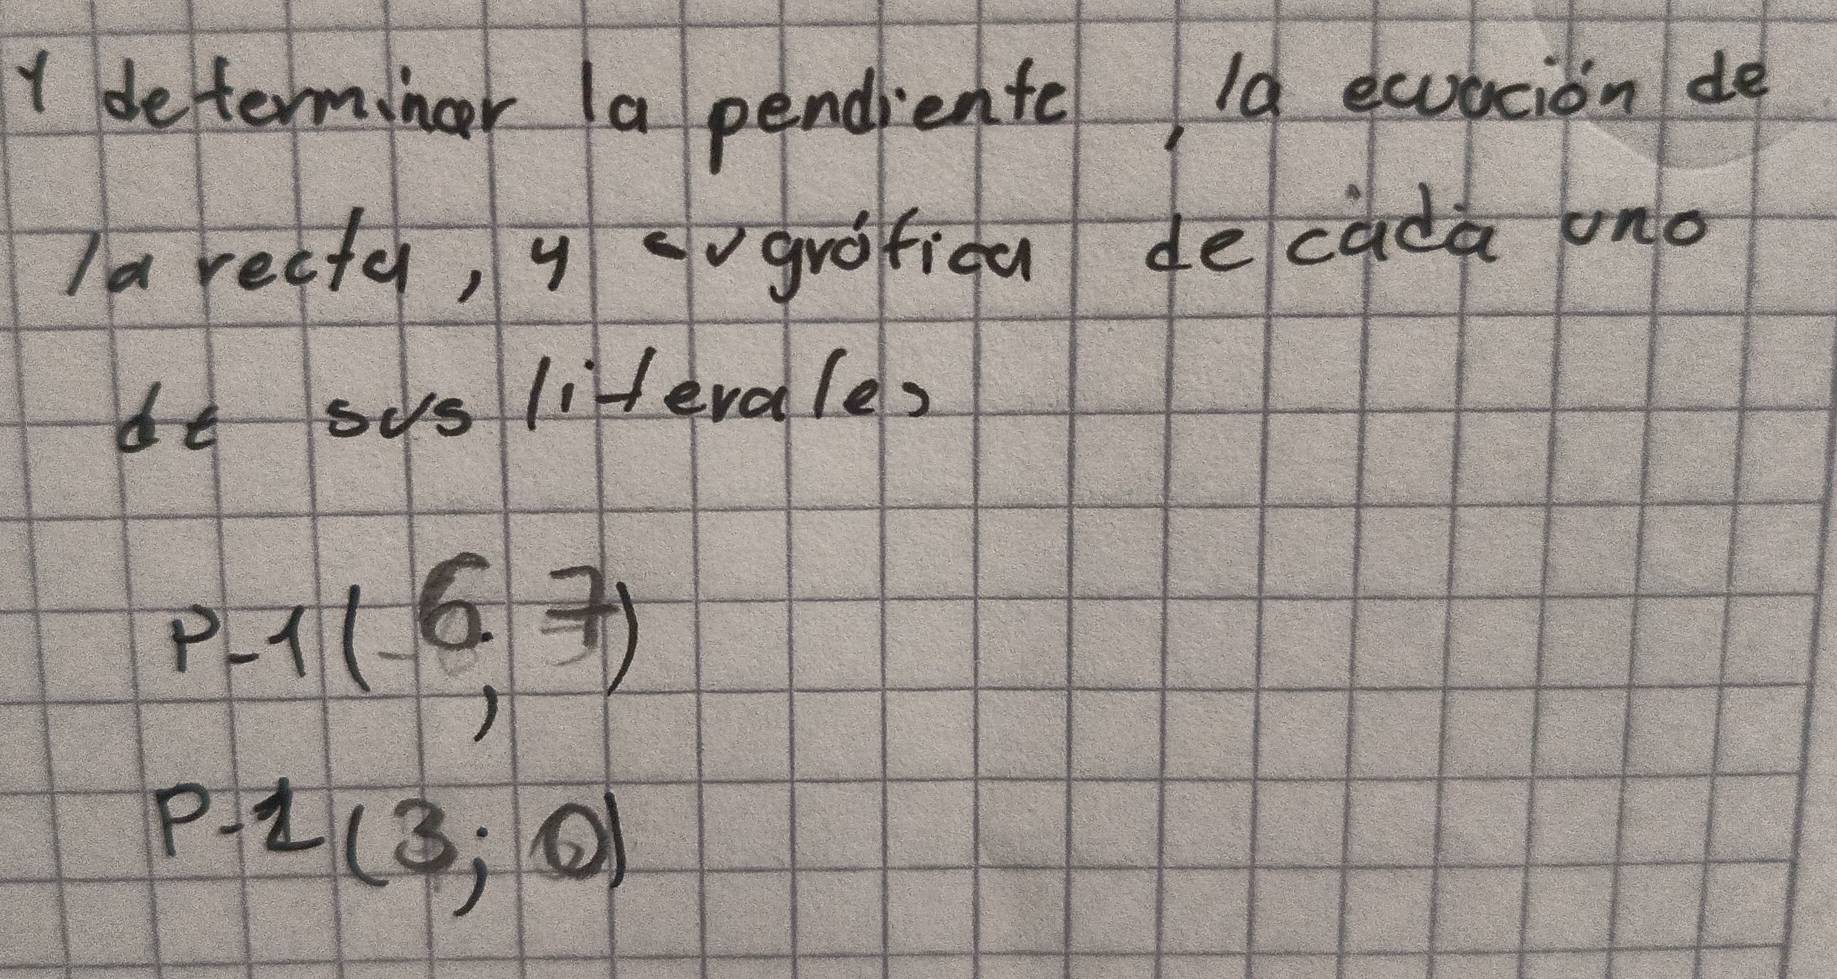 1 determinar la pendiente, la ecuación de
la recta, y su gráfica de cada uno
de sus literales
P-1 (-6; 7)
P-2 (3; 0)